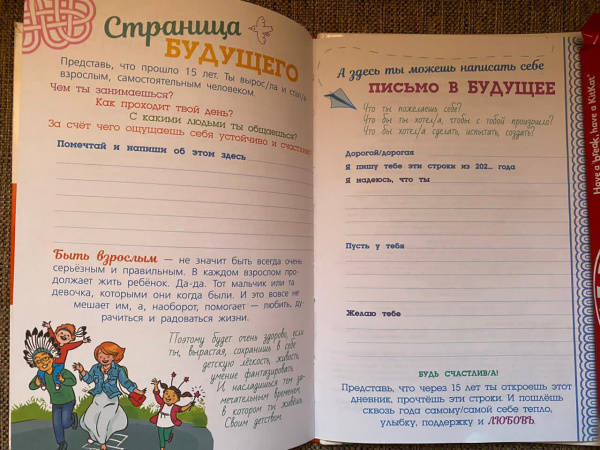 Страница
БУДУЩЕГО
Представь, что прошло 15 лет. Ты вырос/ла и стал/а
взрослым, самостоятельным человеком.
Чем ты занимаешься?
Как проходит твой день?
С какими людьми ты общаешься?
За счёт чего ощущаешь себя устойчиво и счастливо?
Помечтай и напиши об этом здесь
Быть взрослым — не значит быть всегда очень
серьёзным и правильным. В каждом взрослом про-
должает жить ребёнок. Да-да. Тот мальчик или та
девочка, которыми они когда были. И это вовсе не
мешает им, а, наоборот, помогает — любить, ду-
рачиться и радоваться жизни.
Поэтому будет очень здорово, если
ты, вырастая, сохранишь в себе
детскую лёгкость, живость,
умение фантазировать.
И насладишься тем за-
мечательным временем,
в котором ты живёшь.
Своим детством.
А здесь ты можешь написать себе
ПИСЬМО В БУДУЩЕЕ
Что ты пожелаешь себе?
Что бы ты хотел/а, чтобы с тобой произошло?
Что бы хотел/а сделать, испытать, создать?
Дорогой/дорогая
Я пишу тебе эти строки из 202... года
Я надеюсь, что ты
Пусть у тебя
Желаю тебе
БУДЬ СЧАСТЛИВ/А!
Представь, что через 15 лет ты откроешь этот
дневник, прочтёшь эти строки. И пошлёшь
сквозь года самому/самой себе тепло,
улыбку, поддержку и ЛЮБОВЬ.
Have a break, have a KitKat